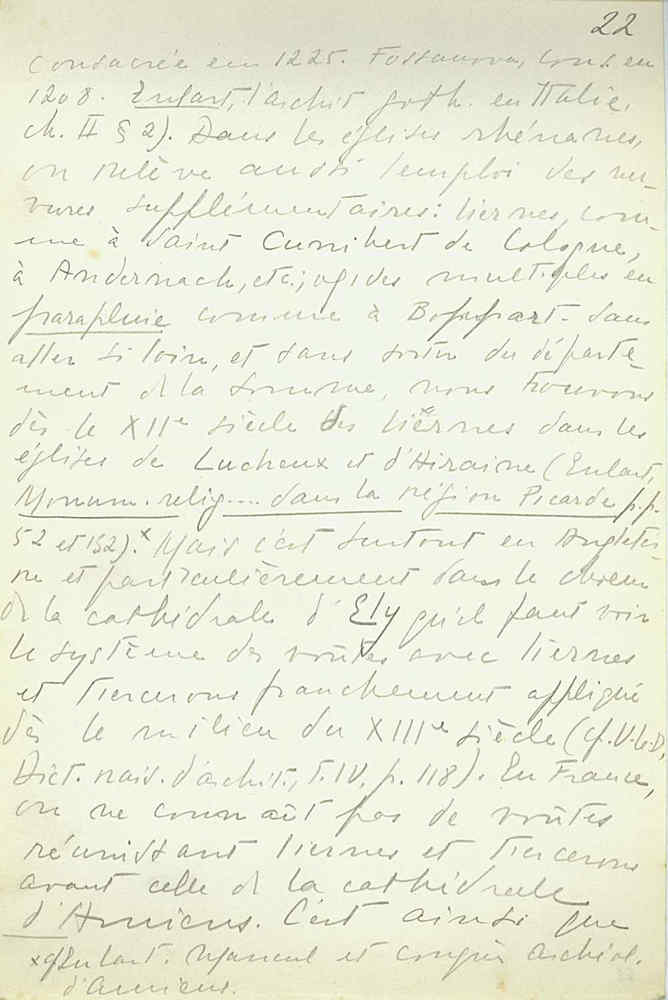 22
consacrée en 1225. Fossanova, cons. en
1208. Enlart, l'archit. goth. en Italie,
ch. II § 2). Dans les églises rhénanes,
on relève aussi l'emploi des ner-
vures supplémentaires : liernes, com-
me à Saint Cunibert de Cologne,
à Andernach, etc.; ogives multiples en
parapluie comme à Boppart - Sans
aller si loin, et sans sortir du départe-
ment de la Somme, nous trouvons
dès le XIIe siècle des liernes dans les
églises de Lucheux et d'Airaine (Enlart,
Monum. relig.... dans la région Picarde p.p.
52 et 152).x Mais c'est surtout en Angleter-
re et particulièrement dans le chœur
de la cathédrale d'Ely qu'il faut voir
le système des voûtes avec liernes
et tiercerons franchement appliqué
dès le milieu du XIIIe siècle (cf. V.-le-D,
Dict. rais. d'archit., T. IV, p. 118). En France,
on ne connaît pas de voûtes
réunissant liernes et tiercerons
avant celle de la cathédrale
d'Amiens. C'est ainsi que
x cf Enlart. Manuel et congrès archéol.
d'Amiens.